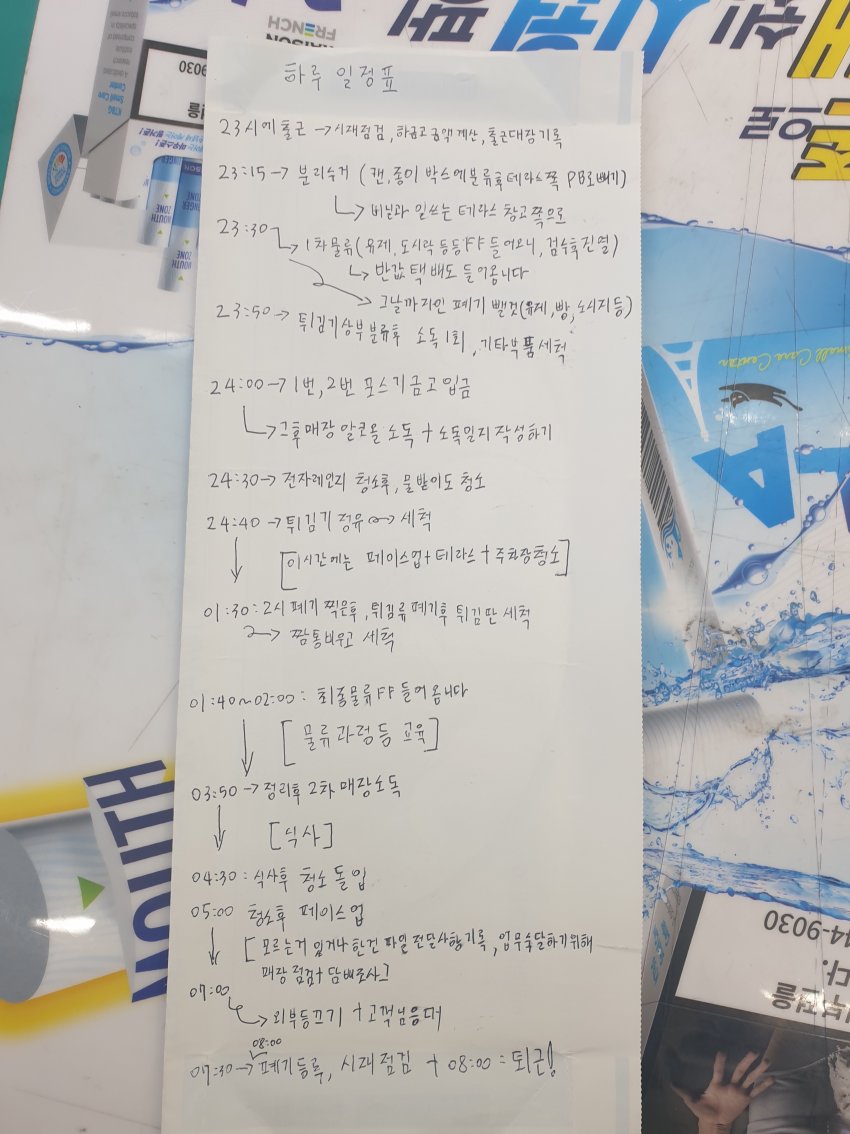 하루 일정표
23시에 출근 → 시재점검, 하금고 금액계산, 출근대장기록
23:15 → 분리수거 (캔, 종이 박스에 분류후 테라스쪽 PB로 빼기)
↳ 비닐과 일쓰는 테라스 창고쪽으로
23:30
↳ 1차물류(유제, 도시락 등등 FF 들어오니, 검수후 진열)
↳ 반값 택배도 들어옵니다
그날까지인 폐기 뺄것(유제, 빵, 소시지등)
23:50 → 튀김기상부분류후 소독1회, 기타부품세척
24:00 → 1번, 2번 포스기금고입금
↳ 그후매장 알코올 소독 + 소독일지 작성하기
24:30 → 전자레인지 청소후, 물받이도 청소
24:40 → 튀김기 정유 → 세척
[이시간에는 페이스업 + 테라스 + 주차장 청소]
01:30 : 2시 폐기 찍은후, 튀김류 폐기후 튀김판 세척
→ 짬통비우고 세척
01:40~02:00 : 최종물류FF들어옵니다
[물류과정등 교육]
03:50 → 정리후 2차 매장소독
[식사]
04:30 : 식사후 청소 돌입
05:00 청소후 페이스업
[모르는거 있거나 한건 파일 전달사항기록, 업무숙달하기위해
매장 점검 + 담배조사]
07:00
↳ 외부등끄기 + 고객님응대
08:00
07:30 → 폐기등록, 시재점검 + 08:00 : 퇴근!
MAISON
FRENCH
KT&G
Small Care
Center
9030
MOUTH
ZONE
Small Care Center
44-9030